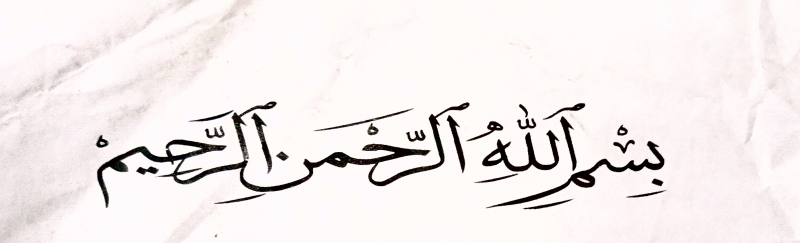 بِسْمِ ٱللَّهِ ٱلرَّحْمَنِ ٱلرَّحِيمْ